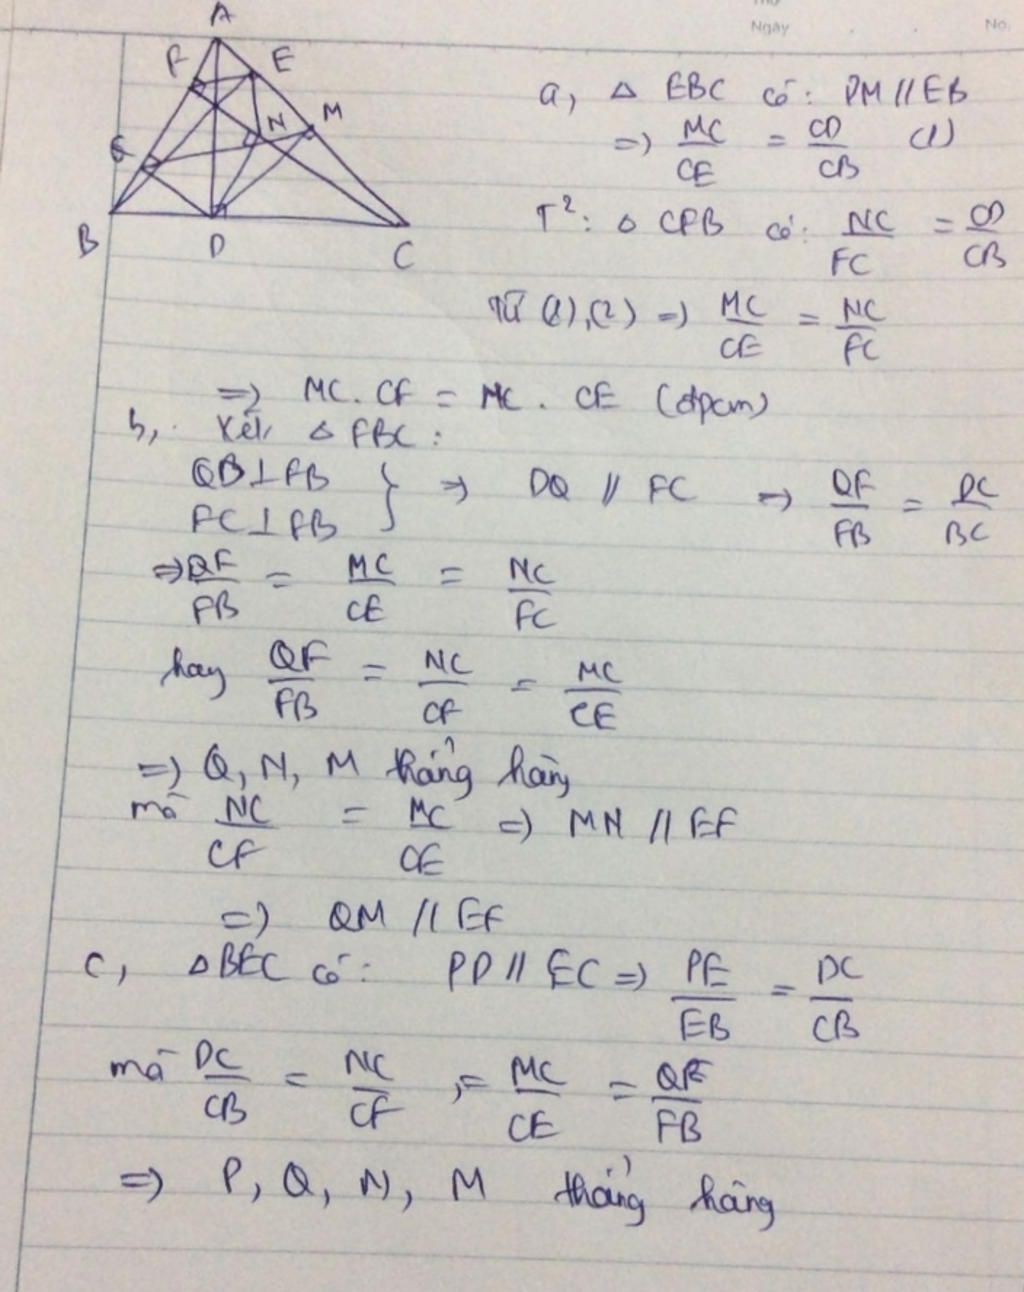 Ngày
No.
A
F
E
N
M
B
D
C
a, △ EBC có: DM // EB
=> MC/CE = CD/CB (1)
T²: △ CFB có: NC/FC = CD/CB
Từ (1),(2) => MC/CE = NC/FC
=> MC. CF = NC. CE (đpcm)
b, Xét △ FBC:
QD⊥FB
FC⊥FB } => DQ // FC => QF/FB = DC/BC
=> QF/FB = MC/CE = NC/FC
hay QF/FB = NC/CF = MC/CE
=> Q, N, M thẳng hàng
mà NC/CF = MC/CE => MN // EF
=> QM // EF
c, △BEC có: PD // EC => PE/EB = DC/CB
mà DC/CB = NC/CF = MC/CE = QF/FB
=> P, Q, N, M thẳng hàng